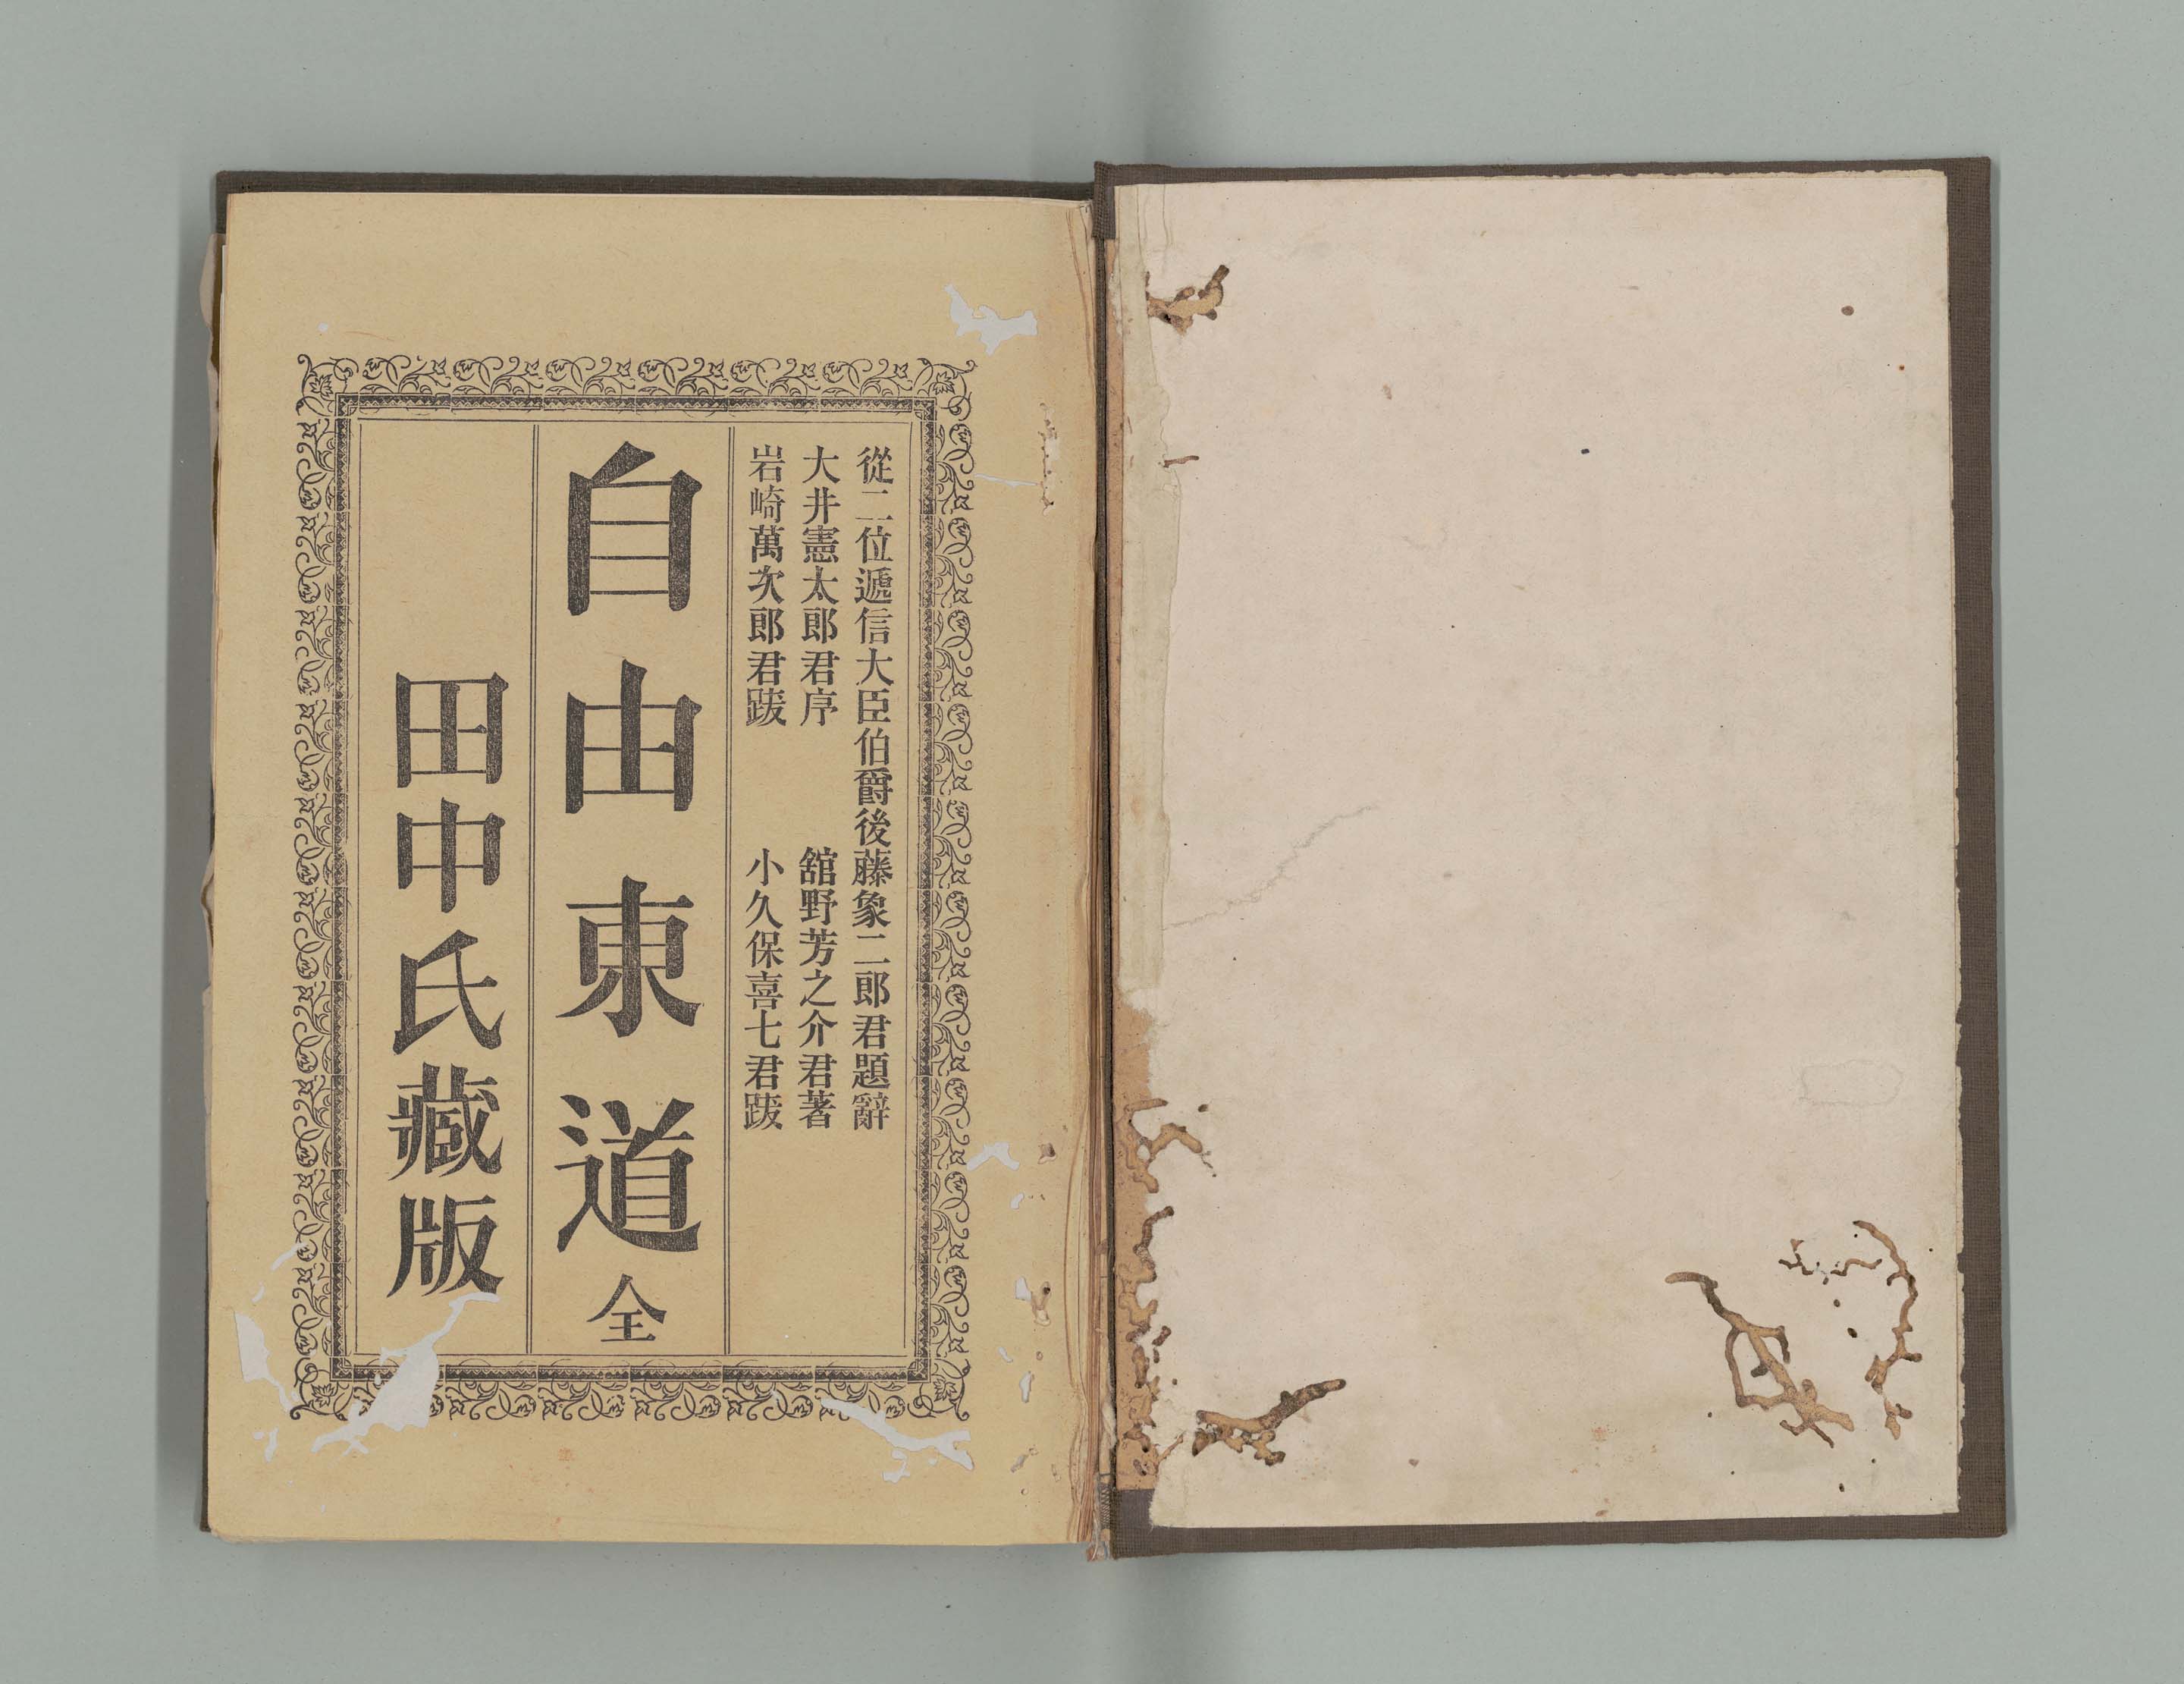 從二位遞信大臣伯爵後藤象二郎君題辭
大井憲太郎君序　舘野芳之介君著
岩崎萬次郎君跋　小久保喜七君跋
自由東道 全
田中氏藏版